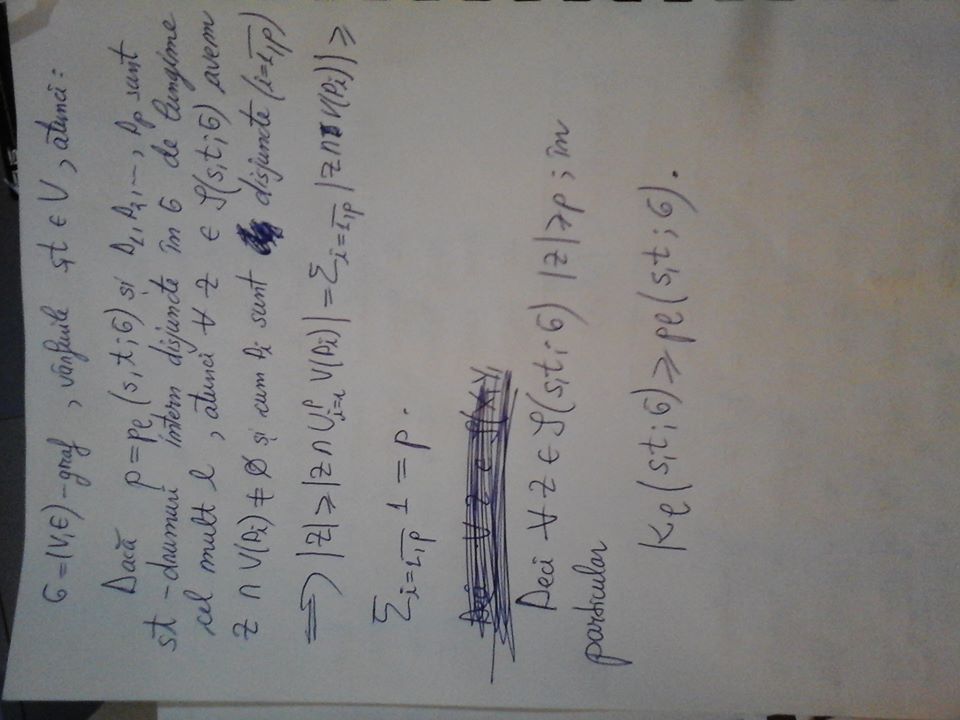 G = (V,E) - graf , vârfurile s,t ∈ V , atunci :
Dacă p = pe (s,t ; G) și D1, D2, ..., Dp sunt
st - drumuri intern disjuncte în G de lungime
cel mult l , atunci ∀ Z ∈ S(s,t ; G) avem
Z ∩ V(Di) ≠ ∅ și cum Di sunt disjuncte (i=1,p)
⟹ |Z| ≥ |Z ∩ ∪ᵖi=1 V(Di)| = Σi=1,p |Z ∩ V(Di)| ≥
Σi=1,p 1 = p .
Deci ∀ Z ∈ S(s,t ; G) |Z| ≥ p ; în
particular
Ke (s,t ; G) ≥ pe (s,t ; G) .